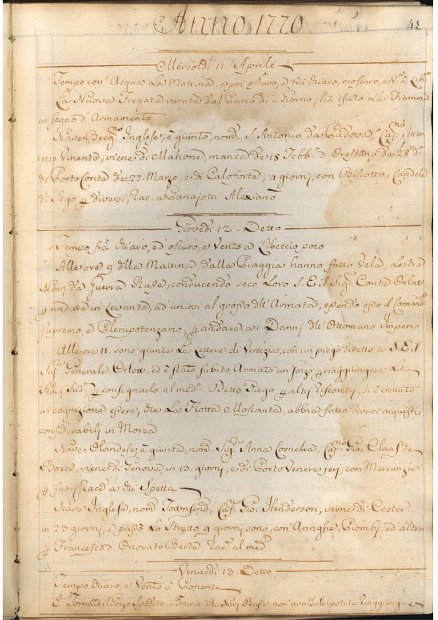 Anno 1770
42
Mercoldi 11. Aprile
Tempo con Acqua La Mattina, e poi oscuro, e frà chiaro, e oscuro, e V.to
La Nuova Fregata varata dal Parco di S. hà
in segno d'Armamento
Naue Inglese, è giunto, nom.o S. Antonio da Padova, Cap.o Anto-
nio Venenta, viene di Mahone, manca da 18 Febb.o d'Orestano da 28 d.o
di Porto Conte da 27 Marzo, e di Caloforte, 4 giorni, con Biscotto, Candele
di Sego, e diversi, Rac. a Panajotti Alexiano
Giovedi 12. Detto
Tempo frà chiaro, ed oscuro, e Vento a Libeccio poco
Allesore 9 della Mattina, dalla Piaggia hanno fatto Vela, le trè
Navi da Guerra Russe, conducendo seco Loro S. E. il Sig.r Conte Orlow
p andare in Levante, ad unirsi al grosso dell'Armata, essendo esso il Comand.e
supremo, e Plenipotenziario, p andare ai Danni dell'Ottomano Imperio
Allesore 11. sono giunte le Lettere di Venezia, con un piego diretto a S. E. il
Sig.r Generale Orlow, ed è stato subito Armato un Gozzo p raggiungere Le
Navi sud.e p consegnarlo al med.o Detto Piego p altri riscontri, si è venuto
in cognizione essere, che La Flotta Moscovita, abbia fatto diversi acquisti
considerabili in Morea
Naue Olandese, è giunta, nom.a Sig.ra Anna Cornelia, Cap.no Gio. Claas de
Boer, viene di Genova in 13. giorni, e di Porto Venere jeri con Mercanzie
p fuori Rac. a chi Spetta
Naue Inglese, nom.o Townsend, Cap.no Gio. Henderson, viene di Exeter
in 23 giorni, e passò Lo Stretto 9 giorni sono, con Aringhe, Piombi, ed altro
p Francesco d'Onorato Berte, Rac. al med.o
Venerdi 13. Detto
Tempo chiaro, e Vento à Ponente
È Tornato il Gozzo spedito in Traccia delle Navi Russe, non avendole potute raggiungere